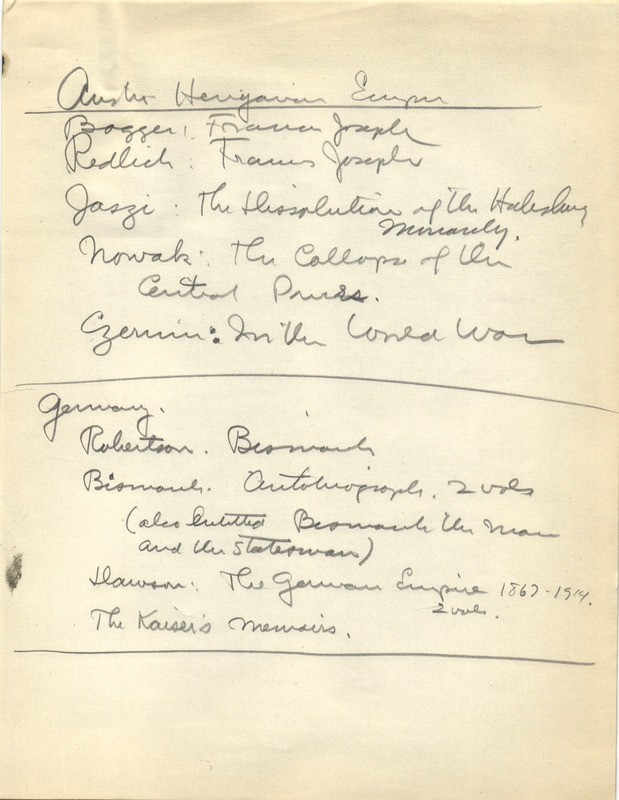 Austro Hungarian Empire
Bagger: Francis Joseph
Redlich: Francis Joseph
Jaszi: The Dissolution of the Habsburg
Monarchy.
Nowak: The Collapse of the
Central Powers.
Czernin: In the World War
Germany.
Robertson. Bismarck
Bismarck. Autobiography. 2 vols
(also entitled Bismarck the Man
and the Statesman)
Dawson: The German Empire 1867-1914.
2 vols.
The Kaiser's Memoirs.